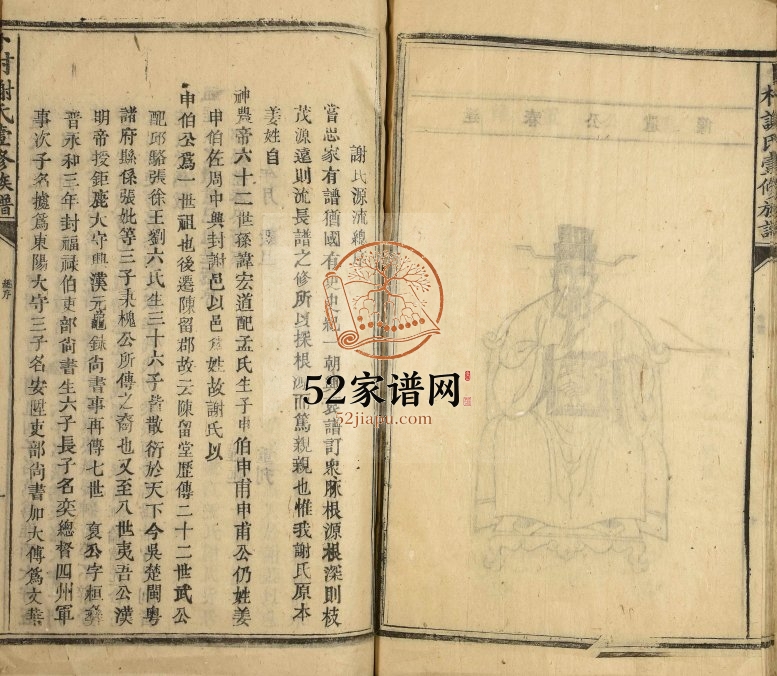 村謝氏壹修族譜
謝氏源流總序
嘗思家有譜猶國有史史紀一朝興衰譜訂眾脉根源根深則枝
茂源遠則流長譜之修所以探根源而篤親親也惟我謝氏原本
姜姓自
神農帝六十二世孫諱宏道配孟氏生子申伯申甫申甫公仍姓姜
申伯佐周中興封謝邑以邑為姓故謝氏以
申伯公爲一世祖也後遷陳留郡故云陳留堂歷傳二十二世武公
配邱駱張徐王劉六氏生三十六子皆散衍於天下今吳楚閩粵
諸府縣係張妣等三子禾槐公所傳之裔也又至八世夷吾公漢
明帝授鉅鹿大守興漢元龍錄尚書事再傳七世裒公字桓彝
晋永和三年封福祿伯吏部尚書生六子長子名奕總督四州軍
事次子名據爲東陽大守三子名安陞吏部尚書加大傳爲文華
村謝氏壹修族譜
總序
52家谱网
52jiapu.com